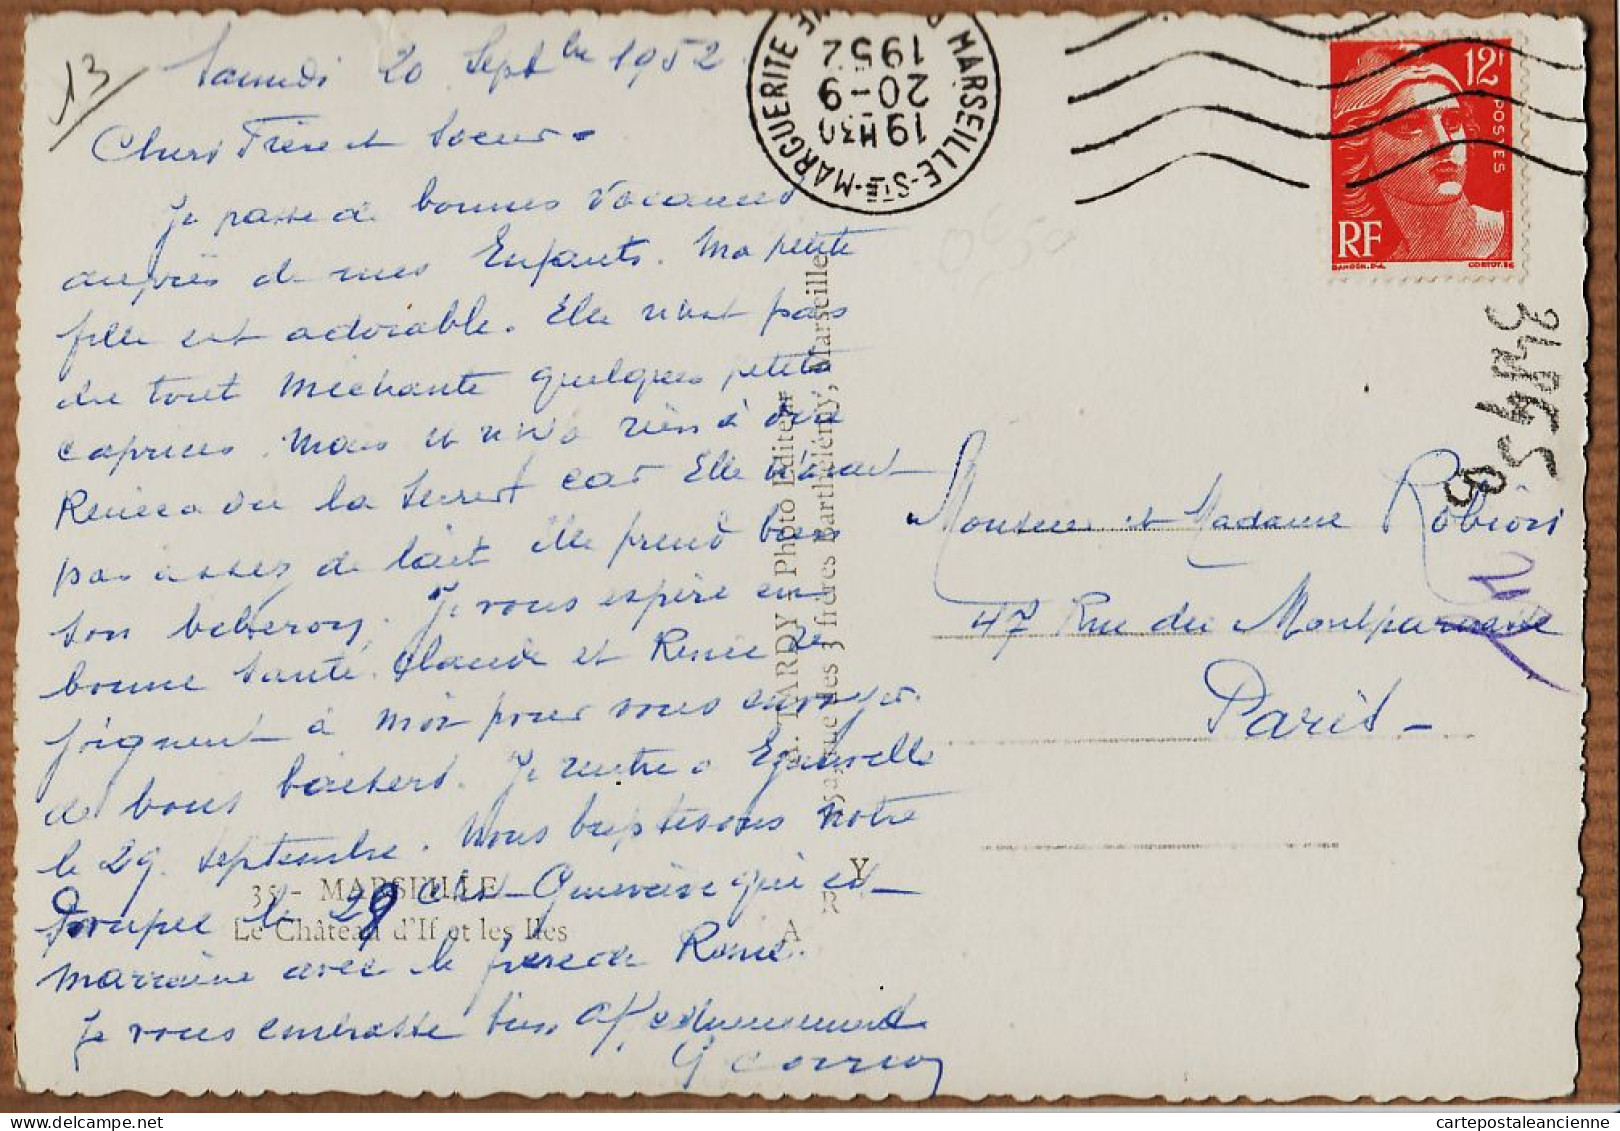 13
Samedi 20 Septbre 1952
Chers Frère et Soeur -
Je passe de bonnes Vacances
auprès de mes Enfants. Ma petite
fille est adorable. Elle n'est pas
du tout méchante quelques petits
caprices. Mais il n'y a rien à dire
Renée a du la car Elle n'avait
pas assez de lait elle prend bien
son biberon. Je vous espère en
bonne santé. Claude et Renée se
joignent à moi pour vous envoyer
de bons baisers. Je rentre a
le 29 septembre. Nous baptisons notre
poupée le 29 c'est qui est
marraine avec le frère de Rene.
Je vous embrasse bien affectueusement
MARSEILLE-STE-MARGUERITE
19H30
20-9
1952
12F
POSTES
RF
GANDON. DEL.
CORTOT. SC
Monsieur et Madame
47 Rue du Montparnasse
Paris -
A. TARDY - Photo Editeur
des 3 frères Barthélémy, Marseille
35 - MARSEILLE
Le Château d'If et les Iles
A
R
Y
cartepostaleancienne.com